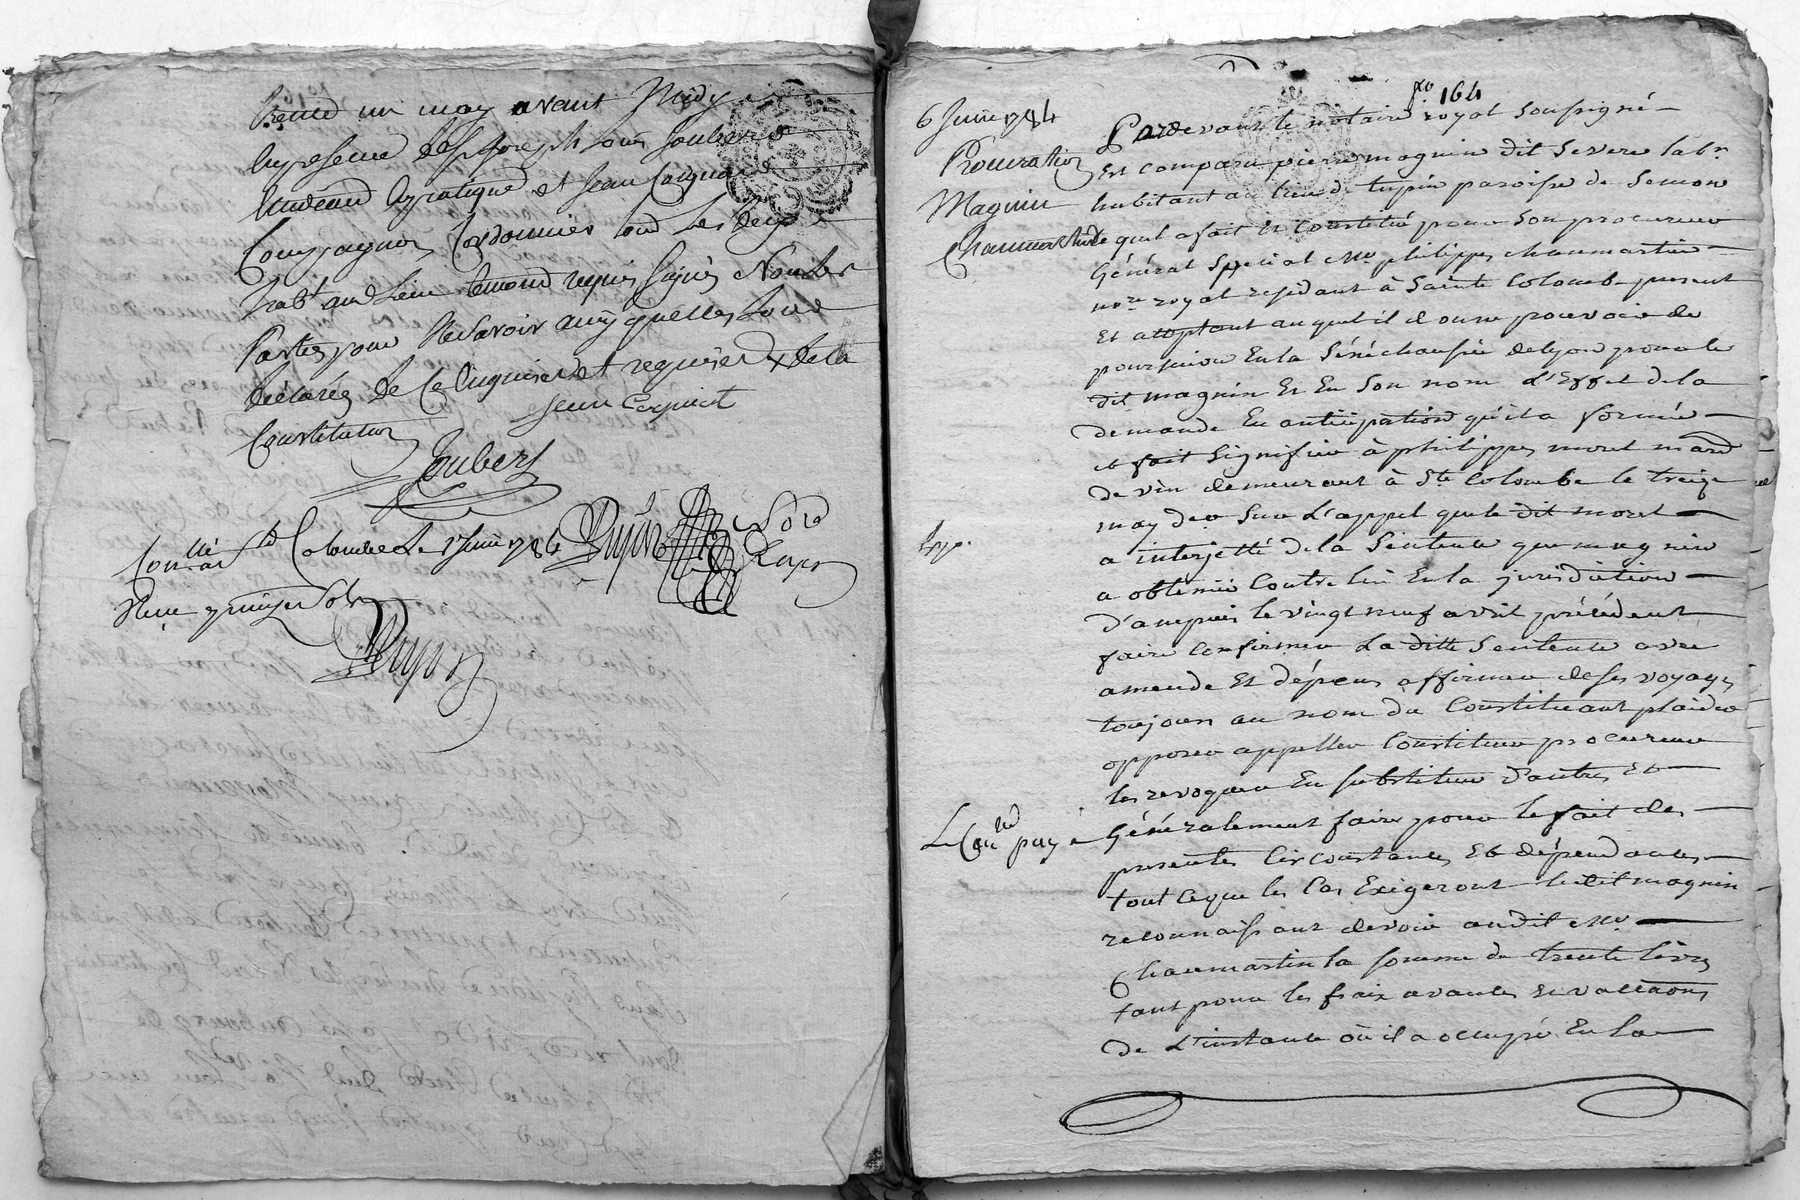 trente un may avant Midy
En presence de Sr joseph Louis Joubert
Praticien et jean Coignet
Compagnon Cordonnier tous les deux
habt. aud. lieu temoins requis signés Non les
Parties pour Ne Savoir auxquelles
declarés de Ce Enquises et requises de la
Constitution
jean Cogniet
Joubert
Conllé a Ste Colombe Le 1er Juin 1784
Reçu quinze Sols
Dujon
No. 164
6 Juin 1784
Procuration
Magnin
Chaumartin
Pardevant le notaire royal soussigné
Est comparu pierre magnin dit Severe labr.
habitant au lieu de tupin paroisse de Semons
lequel a fait et Constitué pour Son procureur
Général Special Me. philippe chaumartin
nore. royal residant à Sainte Colombe present
et acceptant auquel il donne pouvoir de
poursuivre En la Sénéchaussée de lyon pour le
dit magnin Et En Son nom L'Effet de la
demande En anticipation qu'il a formée
et fait Signifier à philippe morel mard.
de vin demeurant à Ste Colombe le treize
may der. Sur L'appel que le dit morel
a interjetté de la Sentence que magnin
a obtenue Contre lui En la jurisdiction
d'ampuis le vingt neuf avril précédent
faire Confirmer La ditte Sentence avec
amende Et dépens affirmer de ses voyages
toujours au nom du Constituant plaider
opposer appeller Constituer procureur
les revoquer En substituer d'autres Et
Le Conlle payé
Généralement faire pour le fait des
presentes Circonstances Et dépendances
tout Ce que les Cas Exigeront le dit magnin
reconnaissant devoir au dit Me.
Chaumartin la somme de trente livres
tant pour les fraix avances Et vaccations
de L'instance où il a occupé En la